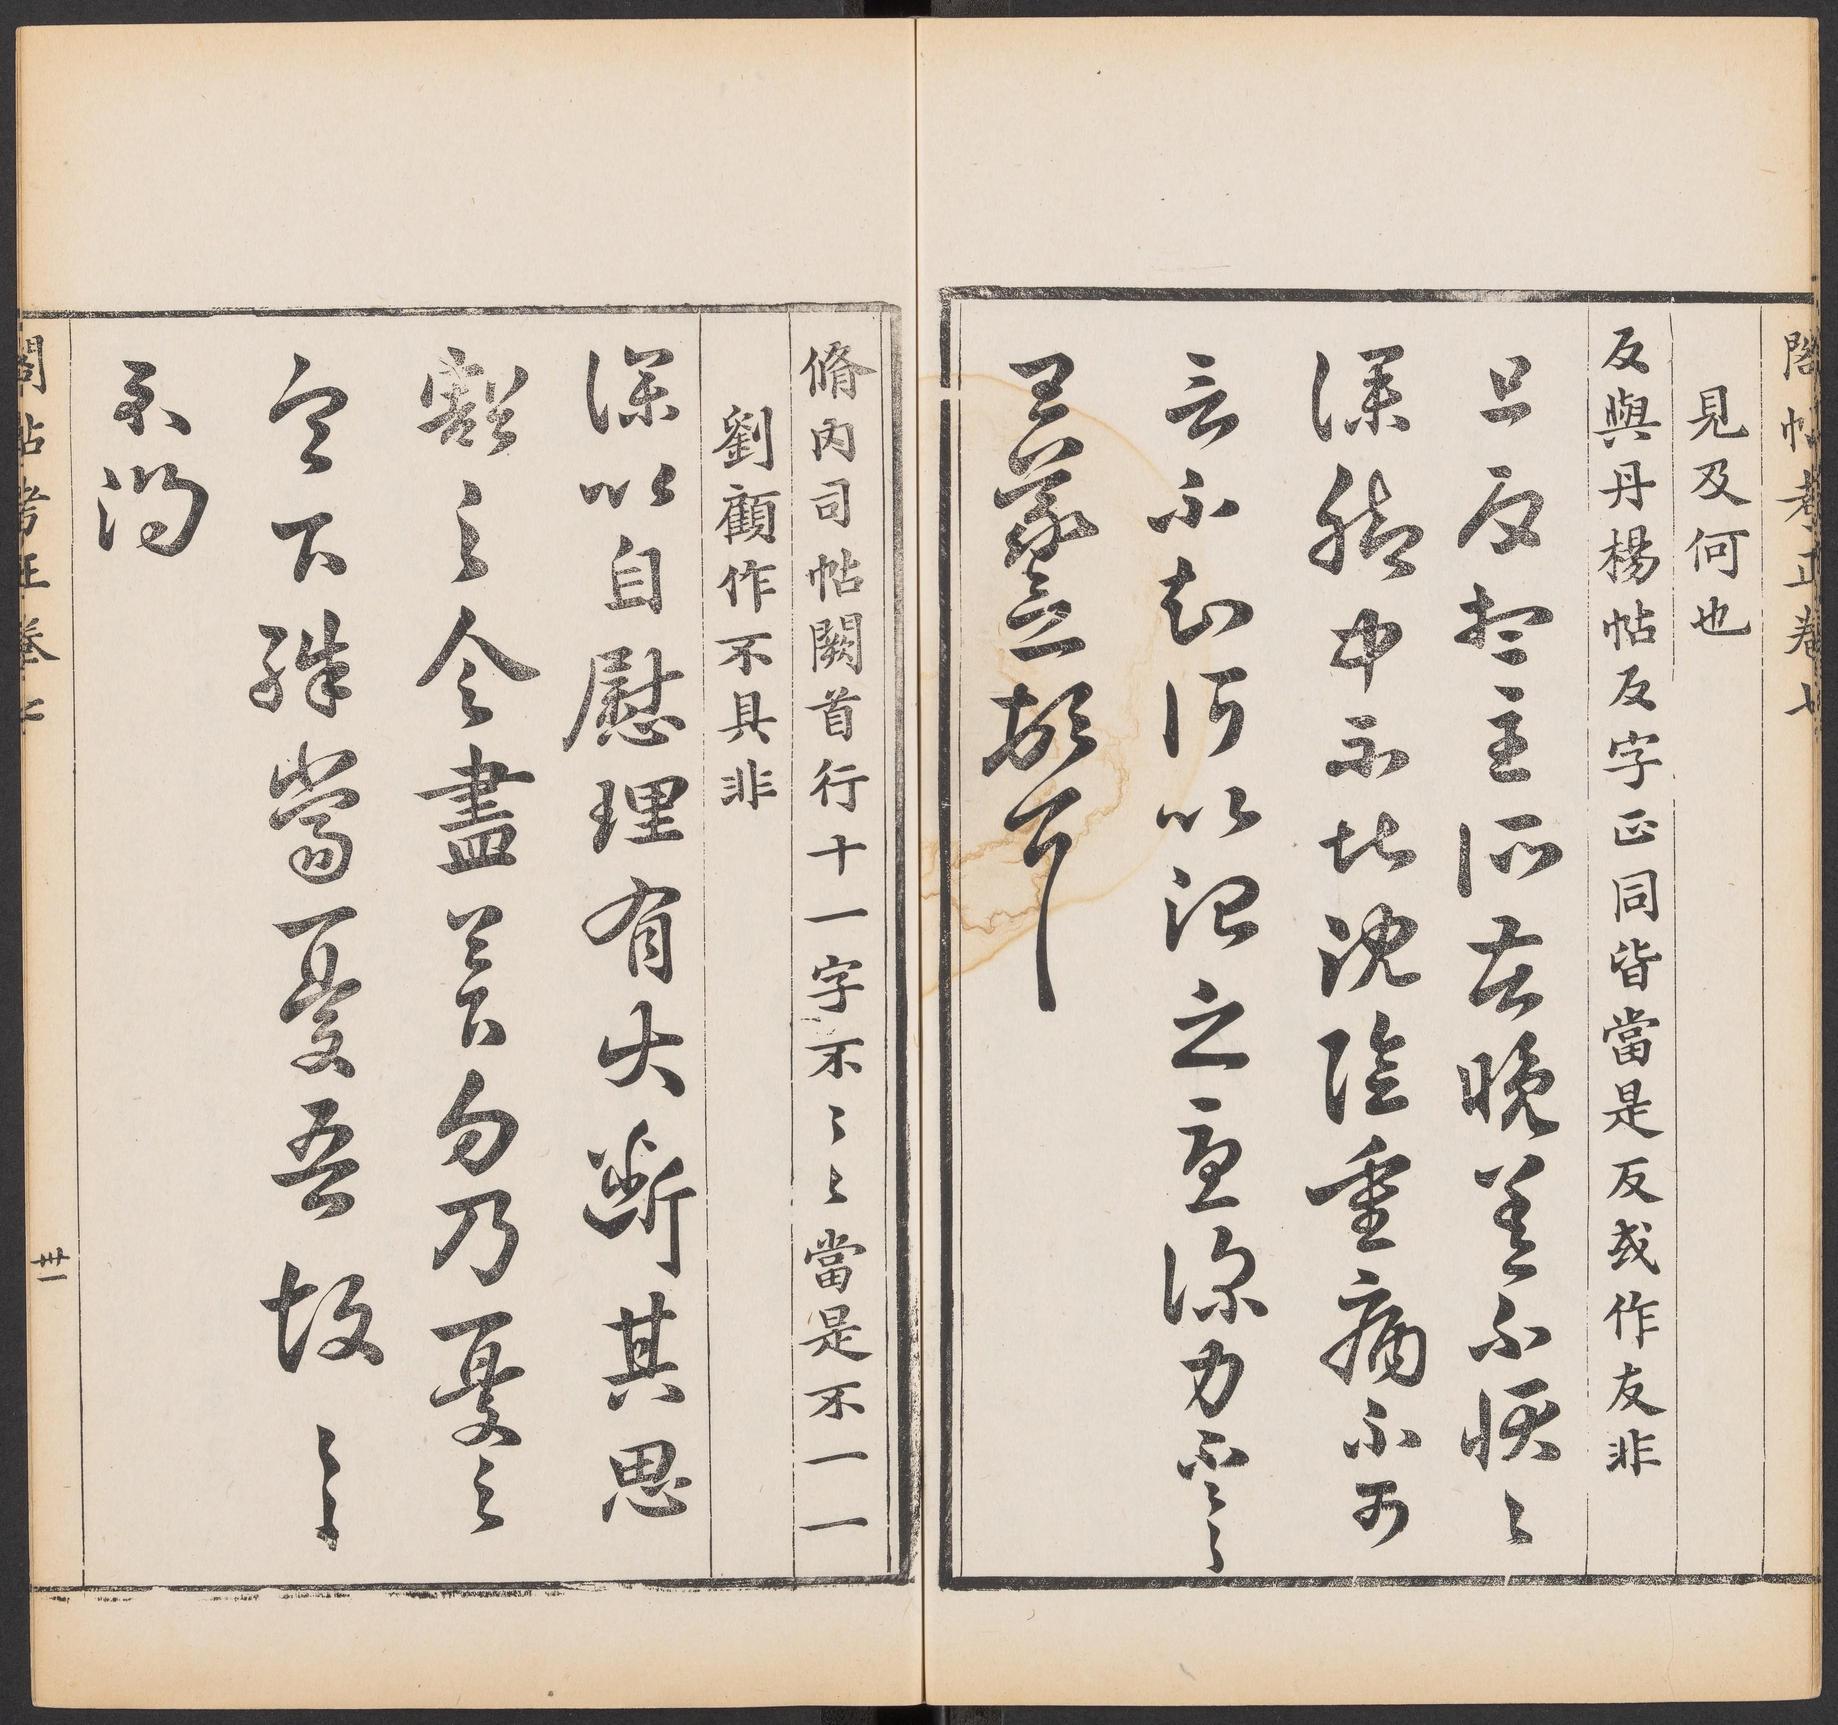 閣帖考正卷七
見及何也
反與丹楊帖反字正同皆當是反或作友非
旦反想至所苦晚差不耿〻
僕腳中不堪沈陰重痛不可
言不知何以治之憂深力不一一
王羲之頓首
脩內司帖闕首行十一字不〻〻當是不一一
劉顧作不具非
深以自慰理有大斷其思
豁之令盡足下勿乃憂之
足下殊當憂吾故
閣帖考正卷七
廿一